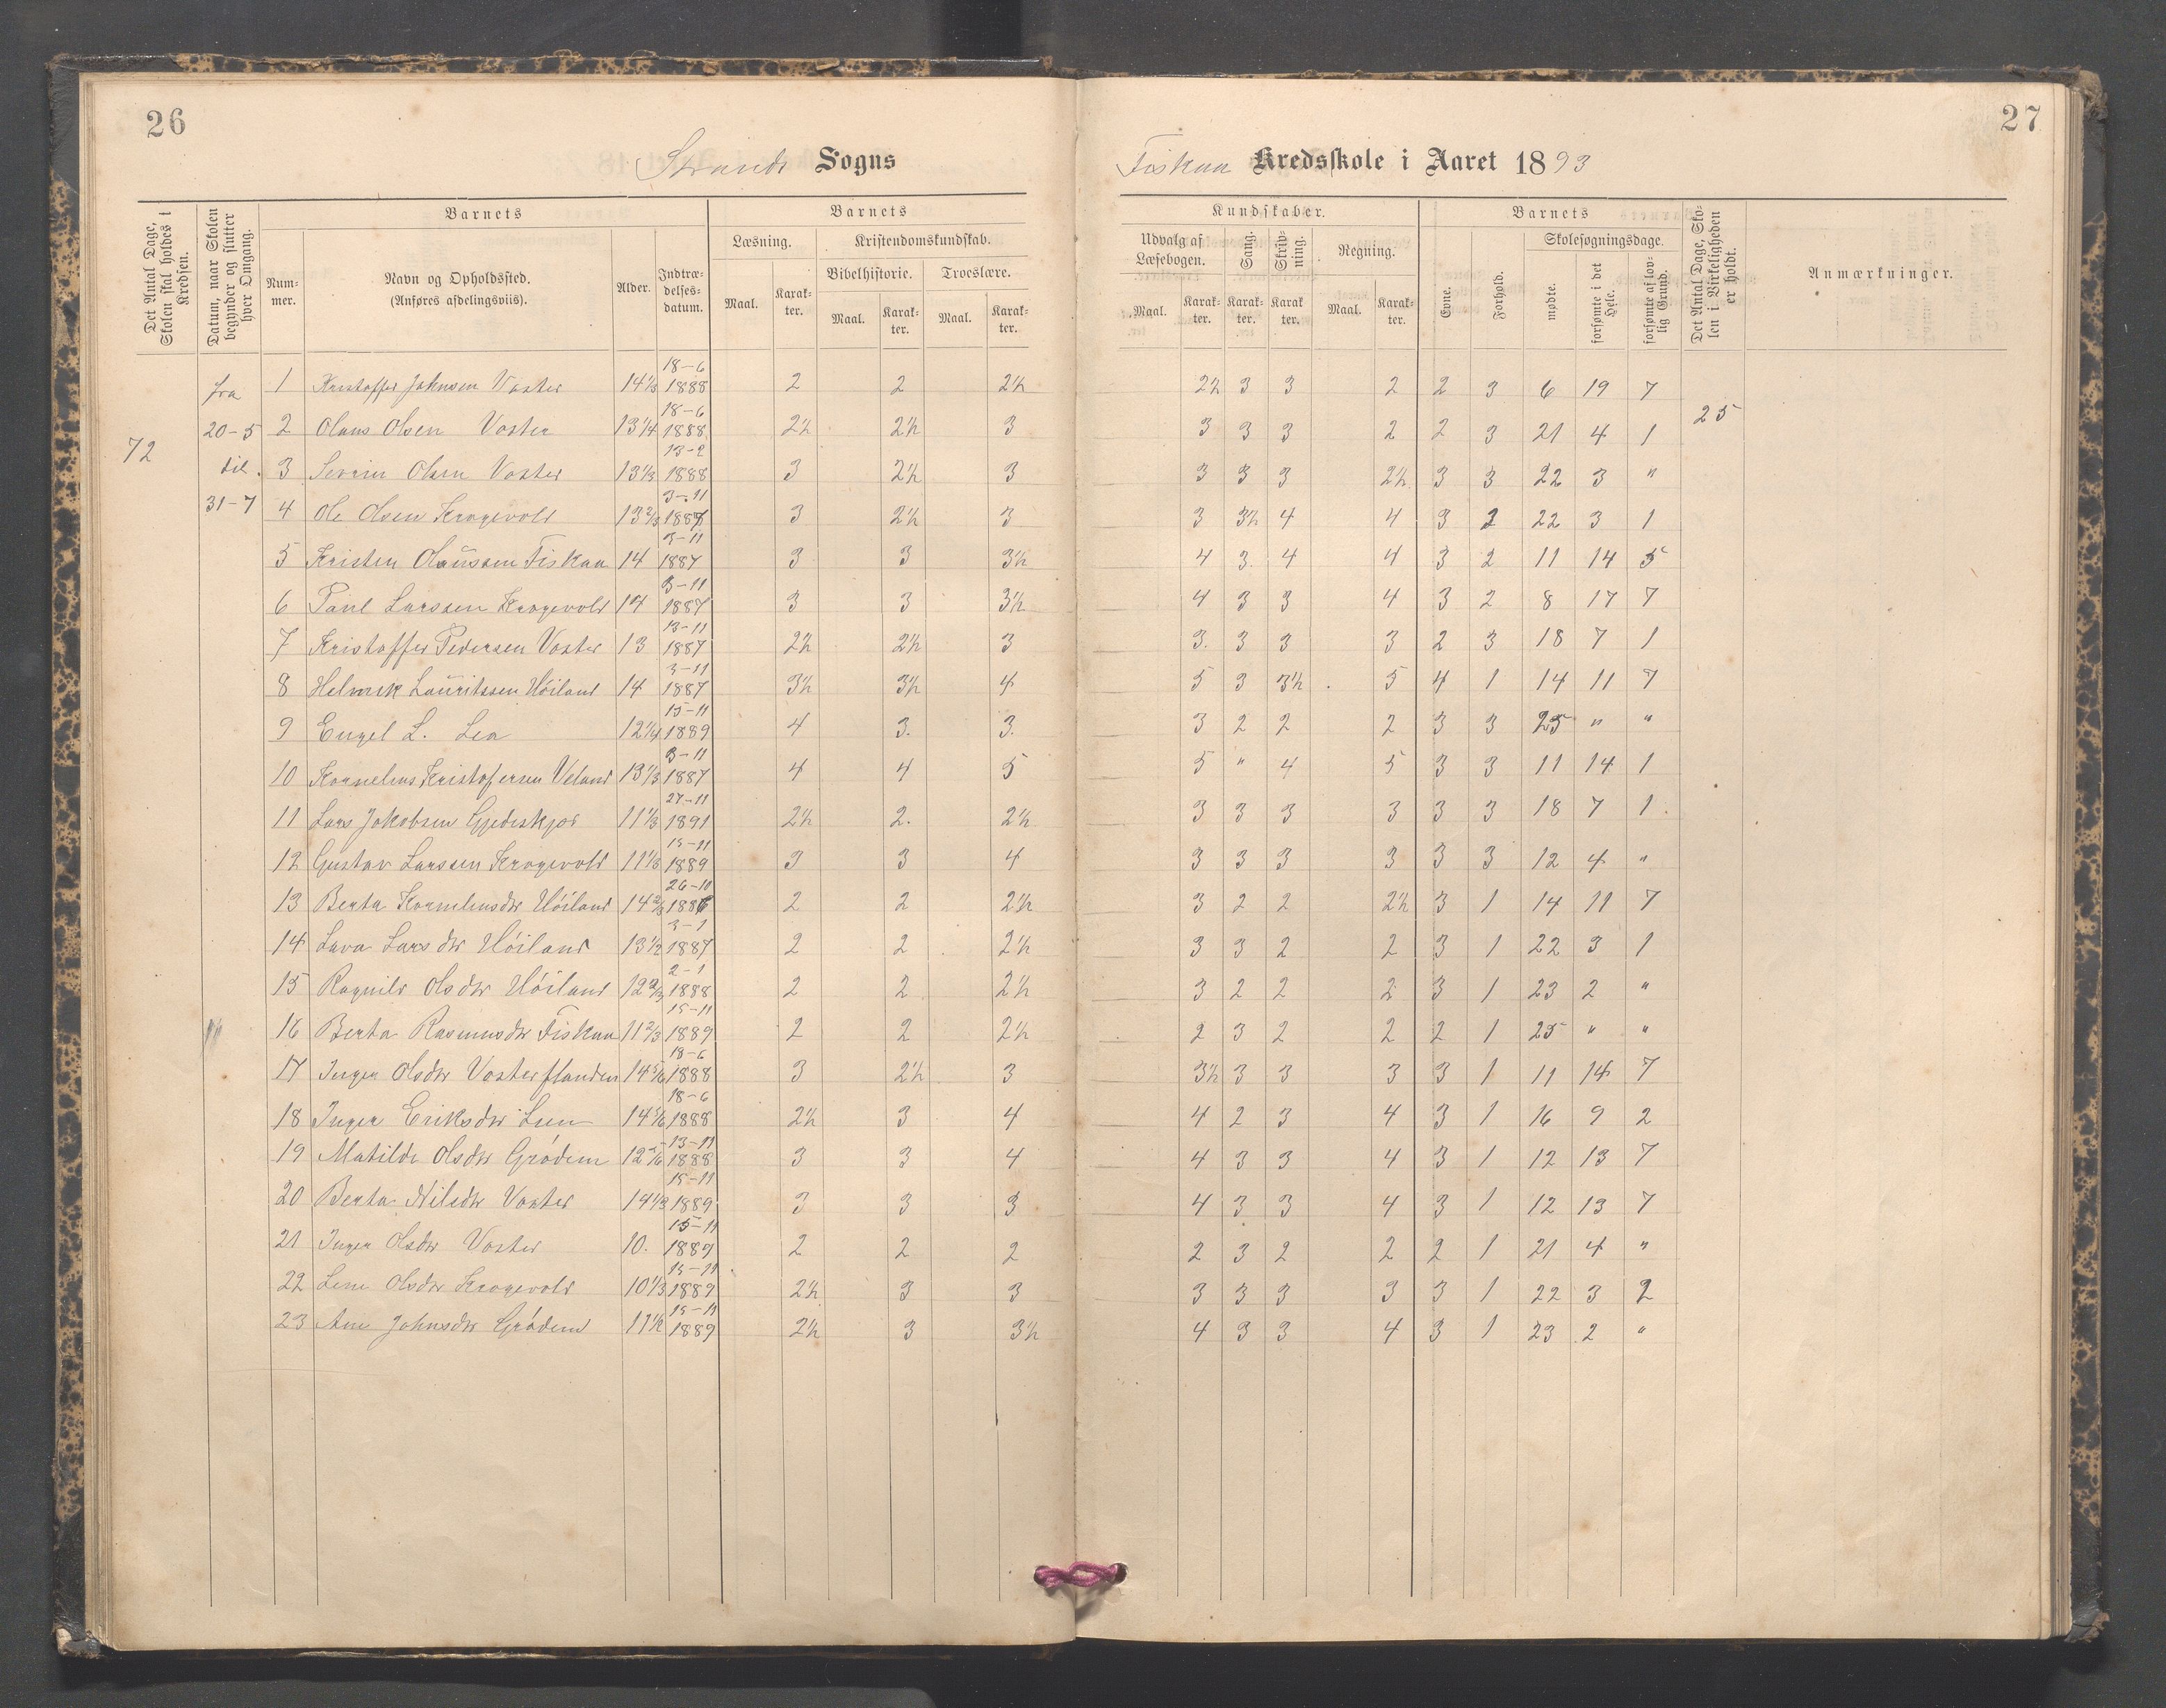 26
27
Strands Sogns
Fiskaa Kredsskole i Aaret 1893
Det Antal Dage, Skolen skal holdes i Kredsen.
Datum, naar Skolen begynder og slutter hver Omgang.
Barnets
Num-mer.
Navn og Opholdssted. (Anføres afdelingsviis).
Alder.
Indtræ-delses-datum.
Barnets
Læsning.
Kristendomskundskab.
Bibelhistorie.
Troeslære.
Maal. Karak-ter. Maal. Karak-ter. Maal. Karak-ter.
Kundskaber.
Udvalg af Læsebogen.
Sang.
Skriv-ning.
Regning.
Maal. Karak-ter. Karak-ter. Karak ter. Maal. Karak-ter.
Barnets
Evne.
Forhold.
Skolesøgningsdage.
mødte.
forsømte i det Hele.
forsømte af lov-lig Grund.
Det Antal Dage, Sko-len i Virkeligheden er holdt.
Anmærkninger.
72
fra
20-5
til.
31-7
25
1 Kristoffer Johnsen Voster 14 1/3 18-6 1888 2 2 2½ 2½ 3 3 2 2 3 6 19 7
2 Olaus Olsen Voster 13 1/4 18-6 1888 2½ 2½ 3 3 3 3 2 2 3 21 4 1
3 Severin Olsen Voster 13 1/3 13-2 1888 3 2½ 3 3 3 3 2½ 3 3 22 3 "
4 Ole Olsen Krogevold 13 2/3 3-11 1887 3 2½ 3 3 3½ 4 4 3 2 22 3 1
5 Kristen Olaussen Fiskaa 14 3-11 1887 3 3 3½ 4 3. 4 4 3 2 11 14 5
6 Paul Larssen Krogevold 14 3-11 1887 3 3 3½ 4 3 3 4 3 2 8 17 7
7 Kristoffer Pedersen Voster 13 13-11 1887 2½ 2½ 3 3. 3 3 3 2 3 18 7 1
8 Helmik Lauritssen Höiland 14 3-11 1887 3½ 3½ 4 5 3 3½ 5 4 1 14 11 7
9 Engel L. Lea 12 1/4 15-11 1889 4 3. 3. 3 2 2 2 3 3 25 " "
10 Kornelius Kristofersen Veland 13 1/3 3-11 1887 4 4 5 5 " 4 5 3 3 11 14 1
11 Lars Jakobsen Gjedeskjor 11 1/3 27-11 1891 2½ 2. 2½ 3 3 3 3 3 3 18 7 1.
12 Gustav Larssen Krogevold 11 1/3 15-11 1889 3 3 4 3 3 3 3 3 3 12 4 "
13 Berta Korneliusdtr Höiland 14 2/3 26-10 1886 2 2 2½ 3 2 2 2½ 3 1 14 11 7
14 Lava Larsdtr Höiland 13 1/2 3-1 1887 2 2 2½ 3 3 2 2 3 1 22 3 1
15 Ragnild Olsdtr Höiland 12 2/3 2-1 1888 2 2 2½ 3 2 2 2 3 1 23 2 "
16 Berta Rasmusdtr Fiskaa 11 2/3 15-11 1889 2 2 2½ 2 3 2 2 2 1 25 " "
17 Inger Olsdtr Vosterflanden 14 5/6 18-6 1888 3 2½ 3 3½ 3 3 3 3 1 11 14 7
18 Inger Eriksdtr Leen 14 5/6 18-6 1888 2½ 3 4 4 2 3 4 3 1 16 9 2
19 Matilde Olsdtr Grödem 12 5/6 13-11 1888 3 3 4 4 3 3 4 3 1 12 13 7
20 Berta Nilsdtr Voster 14 1/3 15-11 1889 3 3 3 4 3 3 4 3 1 12 13 7
21 Inger Olsdtr Voster 10. 15-11 1889 2 2 2 2 3 2 2 2 1 21 4 "
22 Lene Olsdtr Krogevold 10 1/3 15-11 1889 2½ 3 3 3 3 3 3 3 1 22 3 2
23 Ane Johnsdtr Grödem 11 1/2 15-11 1889 2½ 3 3½ 4 3 3 4 3 1 23 2 "